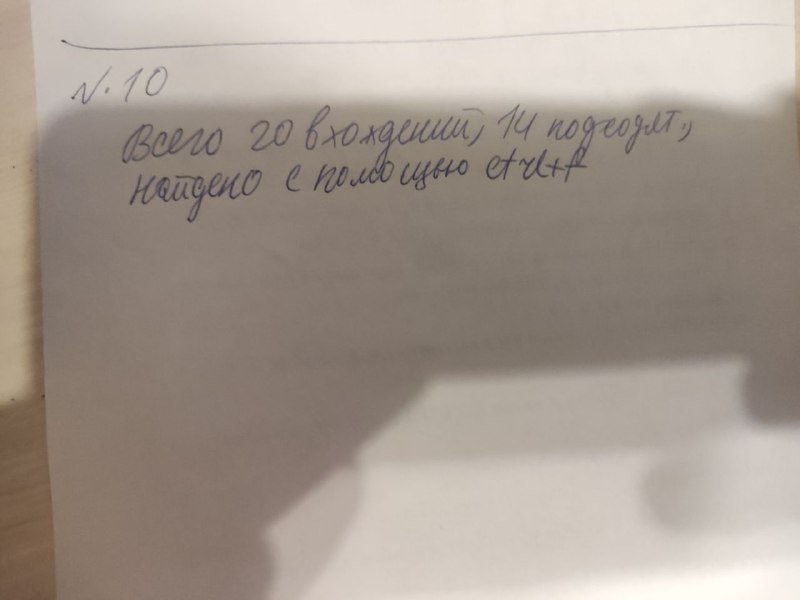 №.10
Всего 20 вхождений, 14 подходят,
найдено с помощью ctrl+f